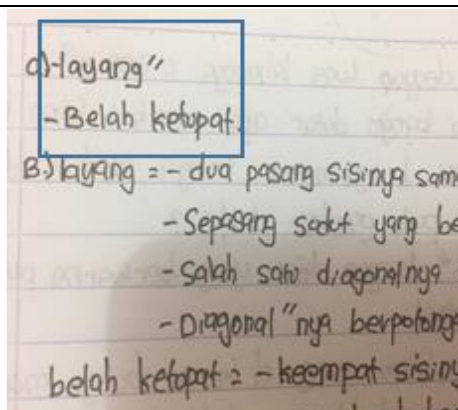 a)-layang"
-Belah ketupat.
B.) layang = - dua pasang sisinya sama
- Sepasang sudut yang be
- Salah satu diagonalnya
- Diagonal"nya berpotong
belah ketupat = - keempat sisiny